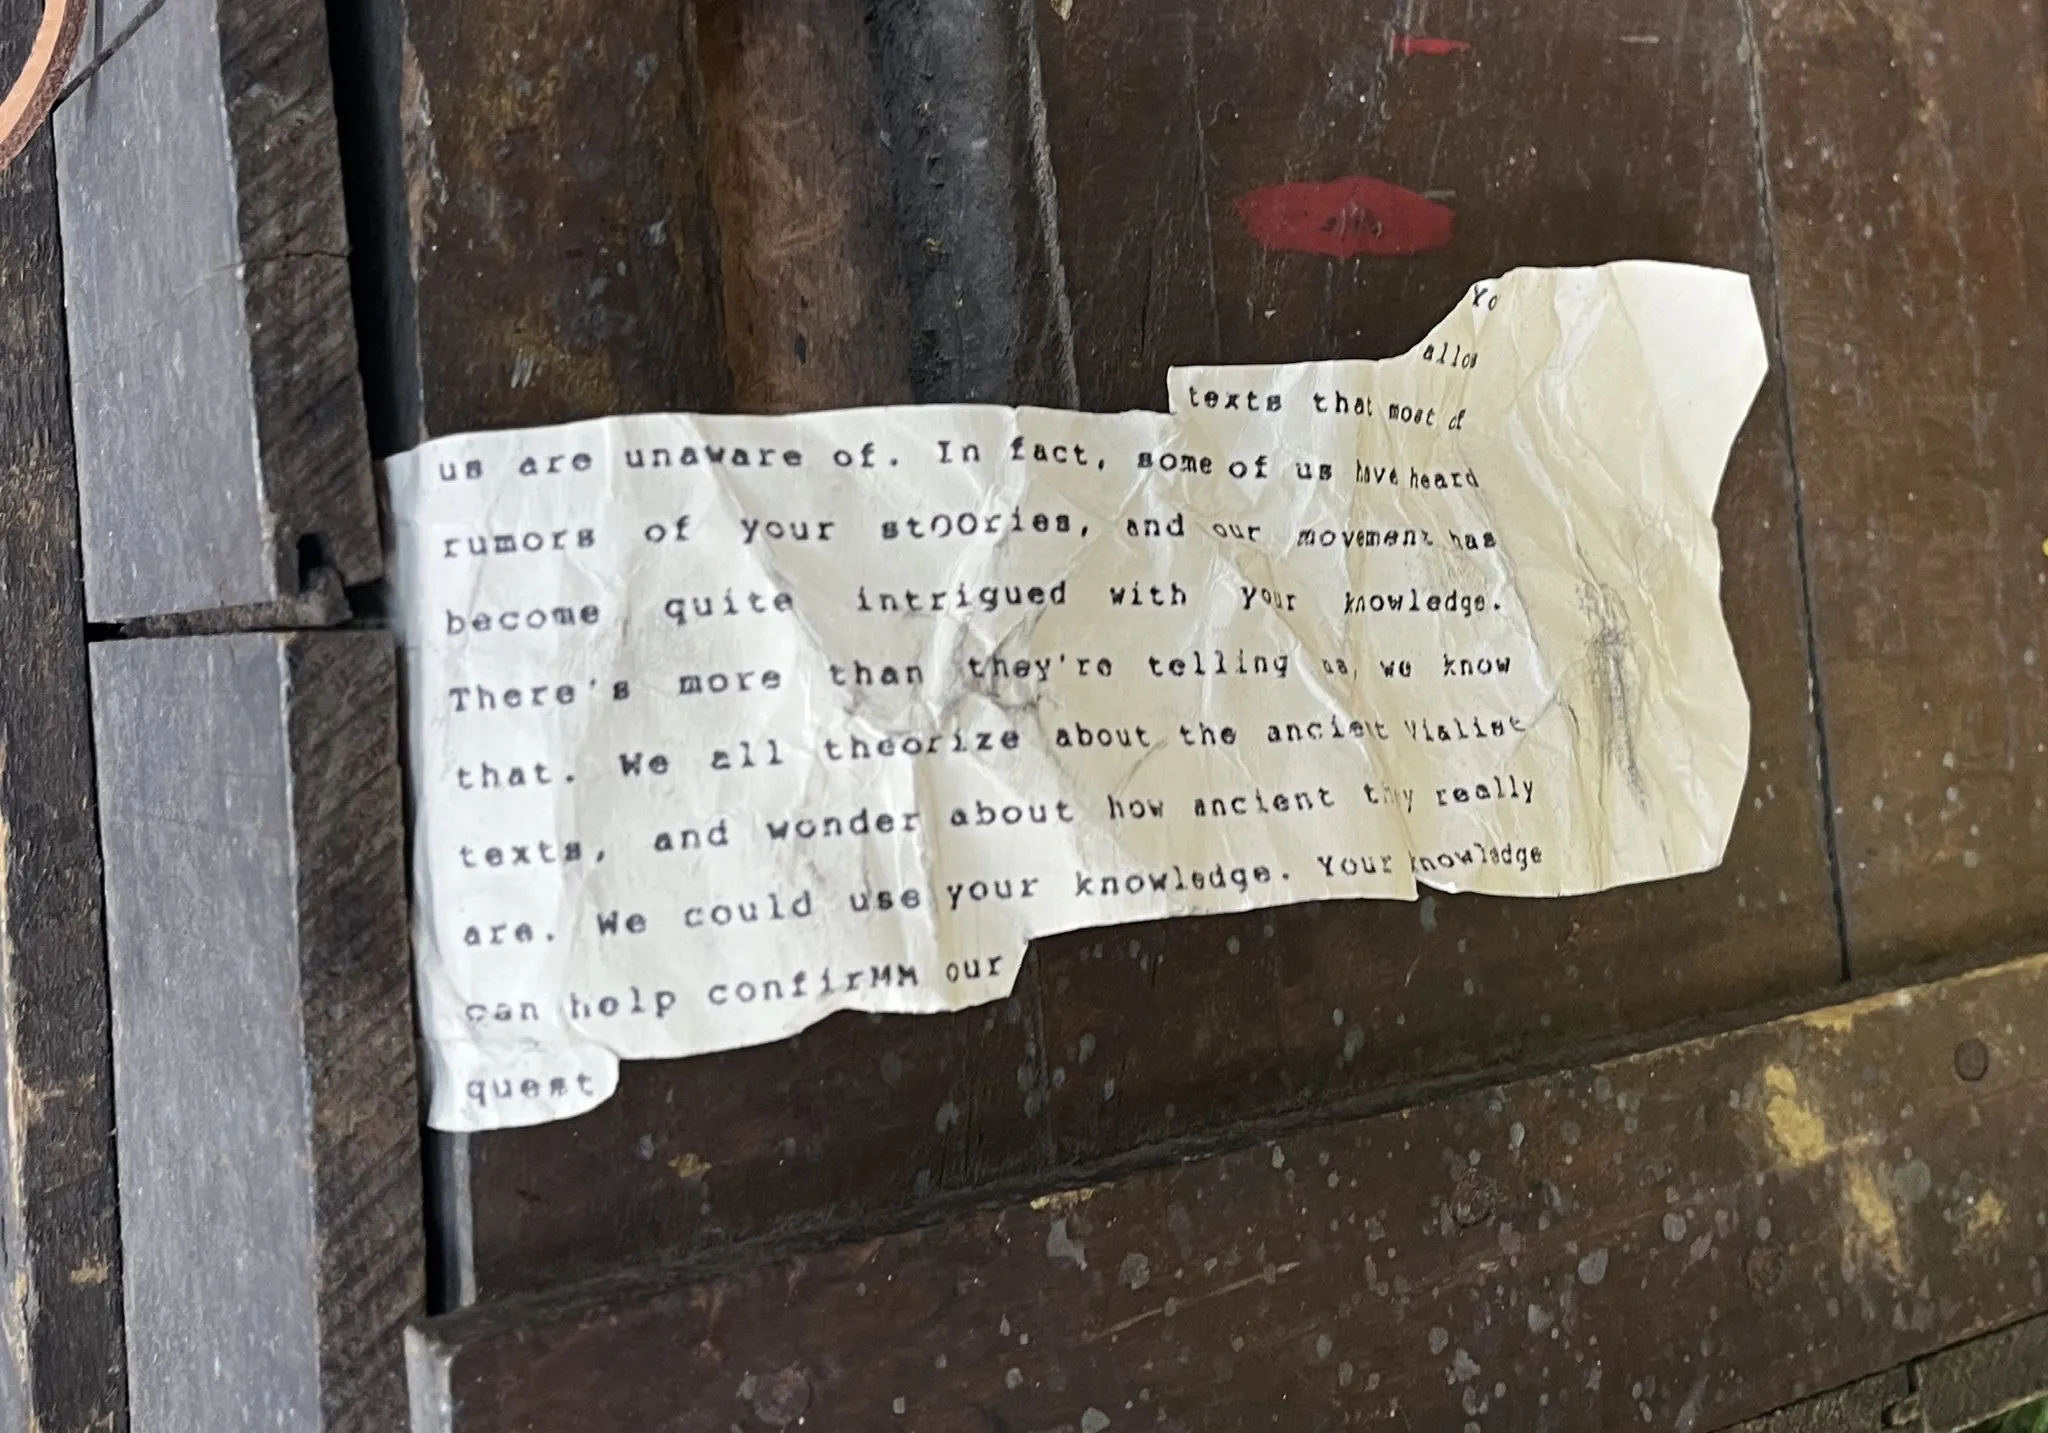 Yo
allow
texts that most of
us are unaware of. In fact, some of us have heard
rumors of your stOOries, and our movement has
become quite intrigued with your knowledge.
There's more than they're telling us, we know
that. We all theorize about the ancient Vialist
texts, and wonder about how ancient they really
are. We could use your knowledge. Your knowledge
can help confirMM our
quest